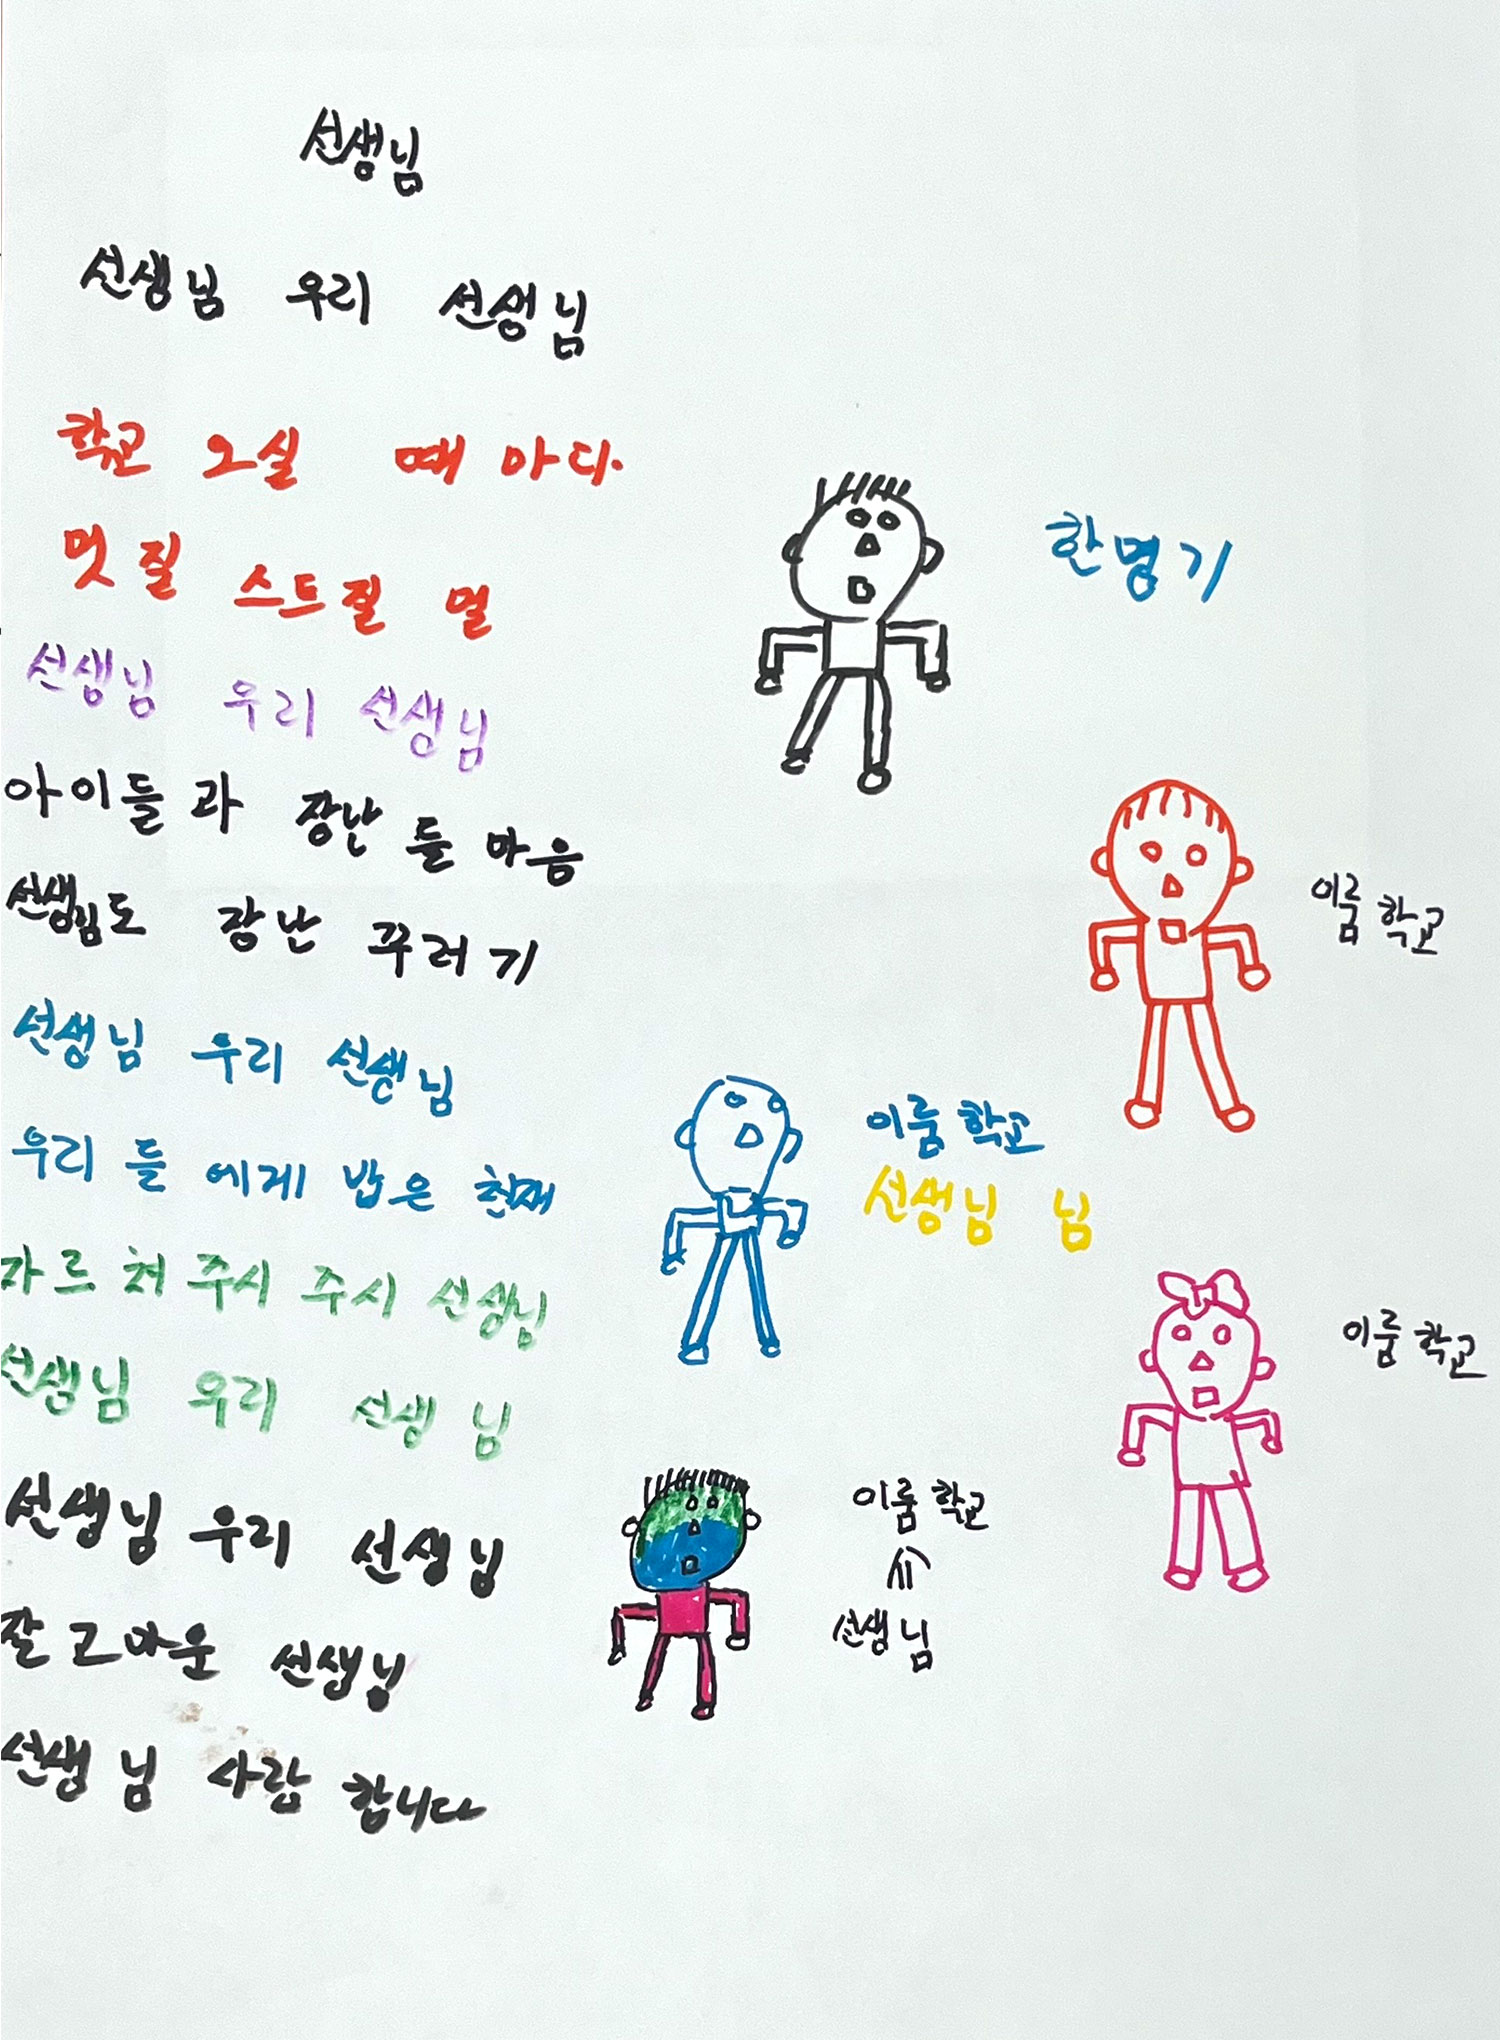 선생님
선생님 우리 선생님
학교 오실 때 마다
멋질 스트질 멀
선생님 우리 선생님
아이들과 장난 들 마음
선생님도 장난 꾸러기
선생님 우리 선생님
우리 들 에게 밥은 천재
가르 쳐 주시 주시 선생님
선생님 우리 선생님
선생님 우리 선생님
잘 고마운 선생님
선생님 사랑 합니다
한명기
이룸 학교
이룸 학교
선생님 님
이룸 학교
이룸 학교
시
선생님